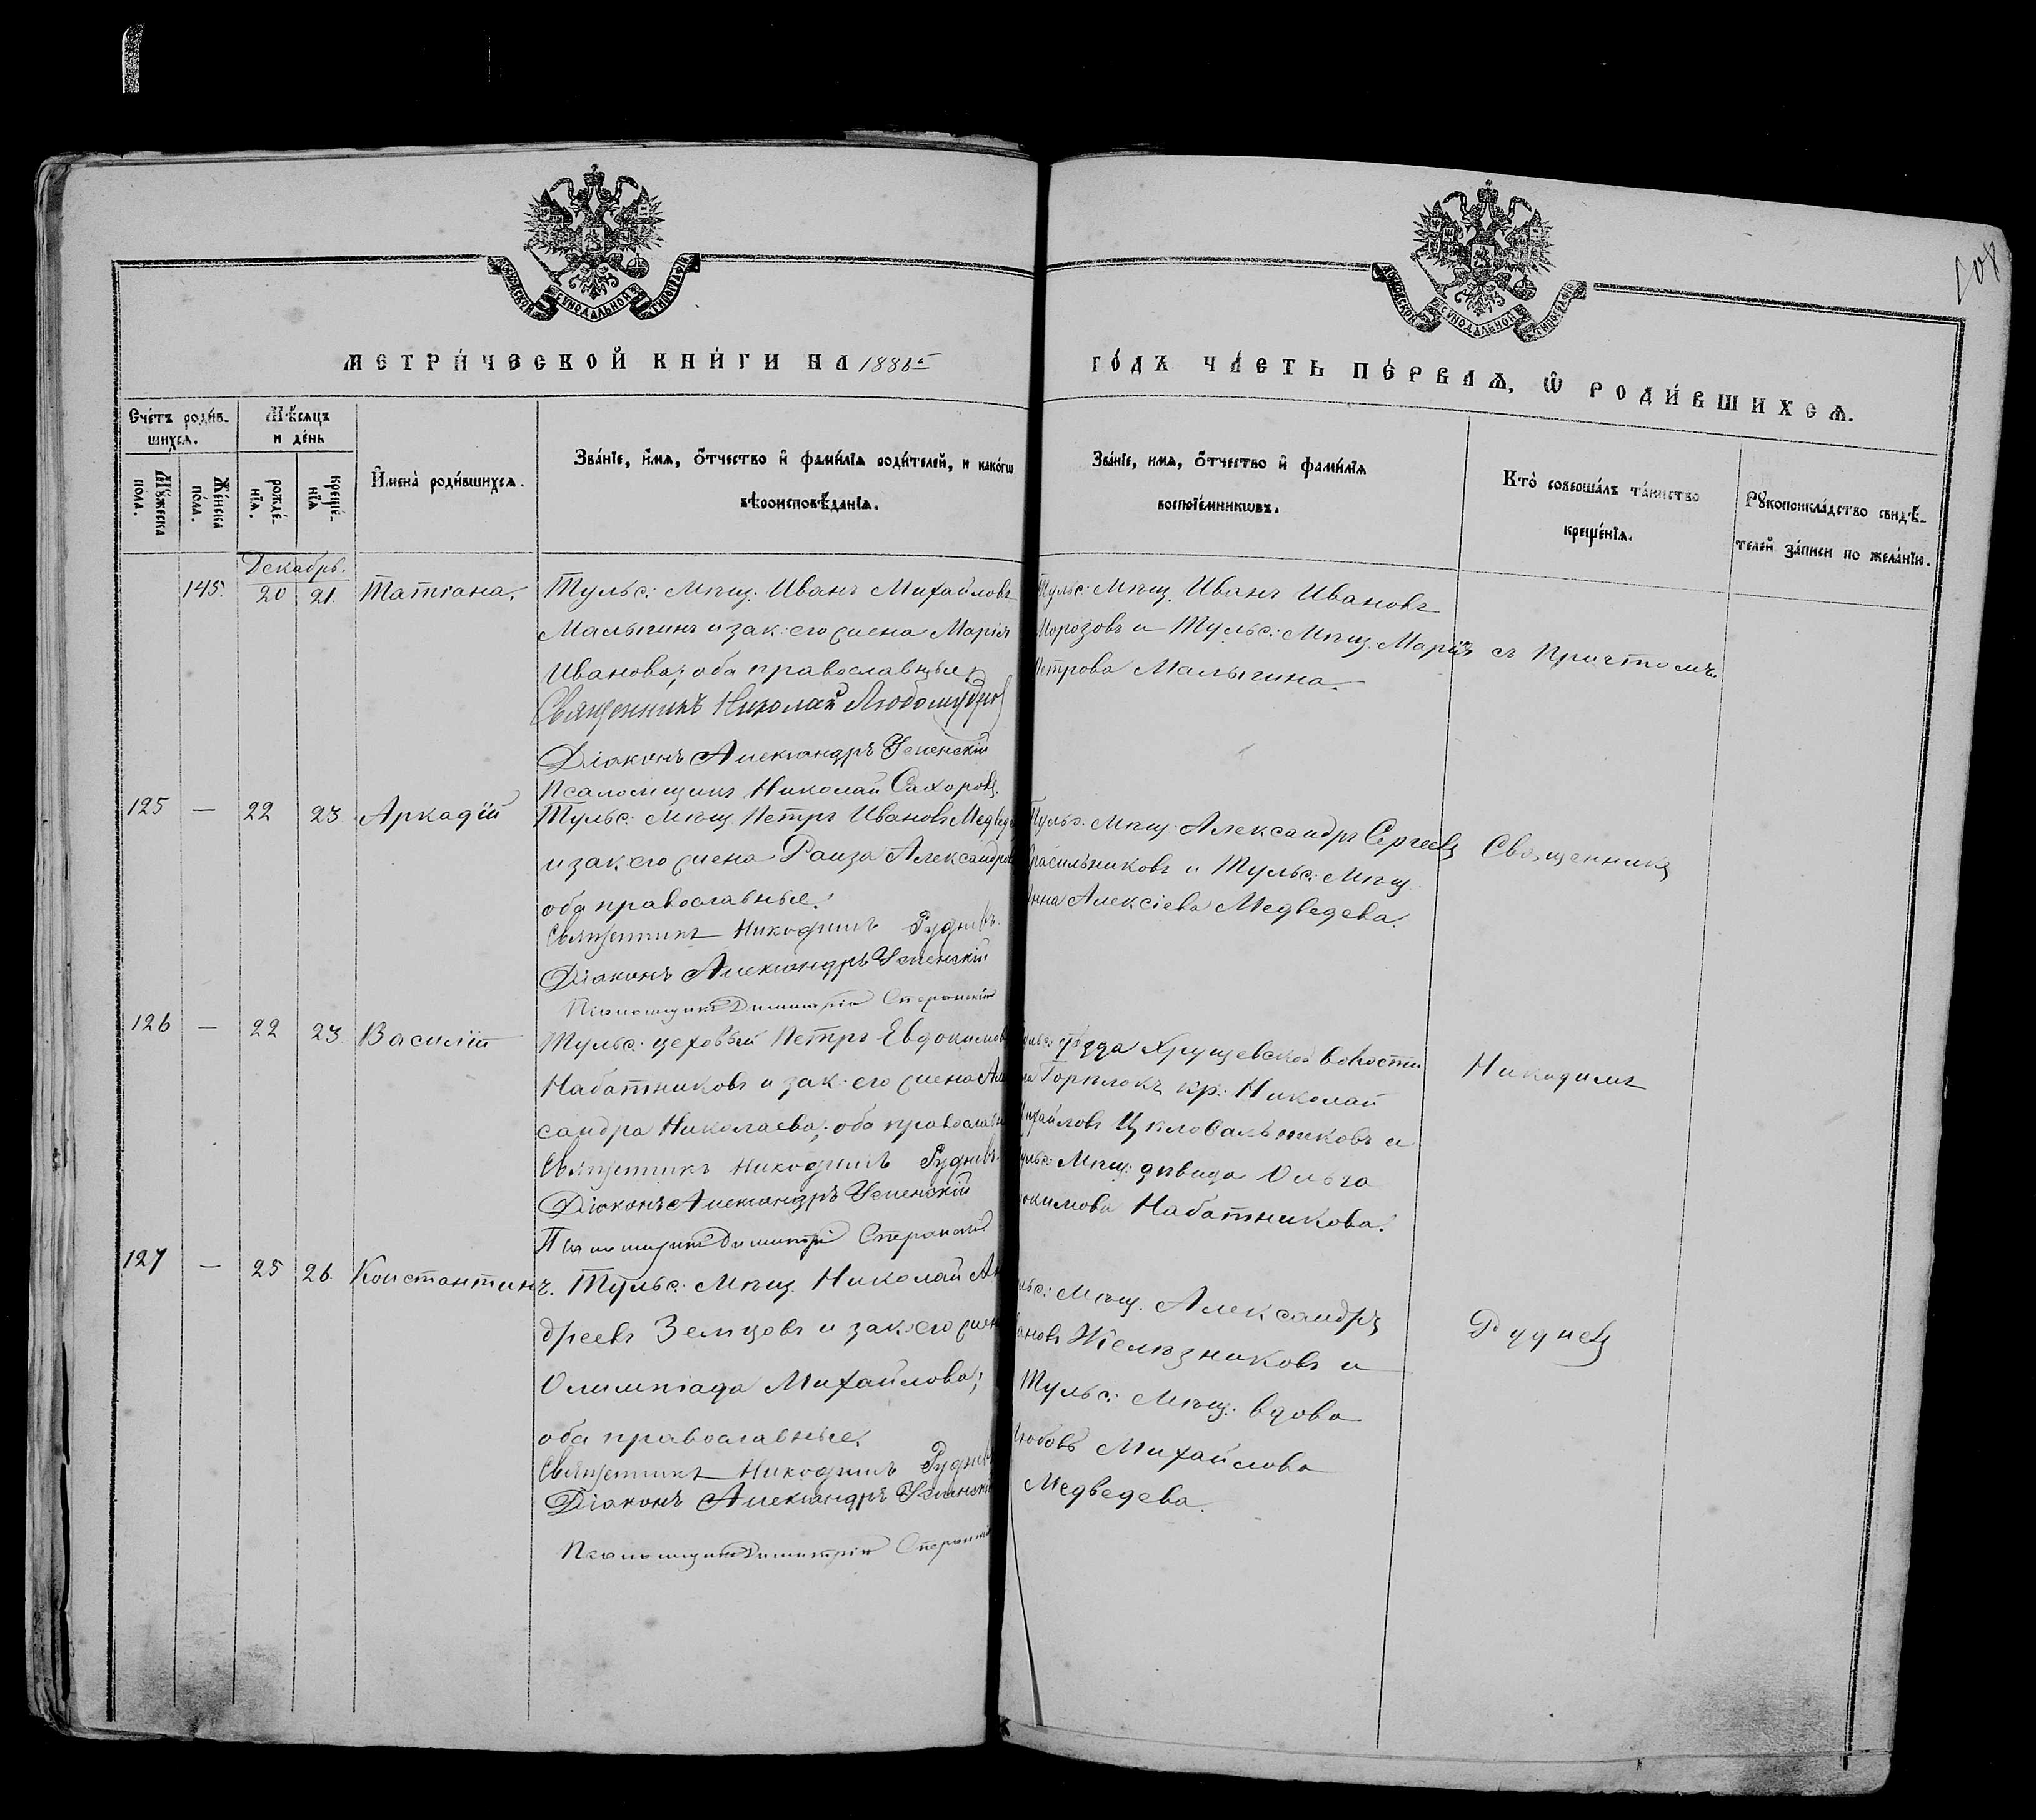 108
МОСКОВСКОЙ СѴНОДАЛЬНОЙ ТИПОГРАФІИ
МОСКОВСКОЙ СѴНОДАЛЬНОЙ ТИПОГРАФІИ
МЕТРИ́ЧЕСКОЙ КНИ́ГИ НА 1886й
ГО́ДЪ ЧА́СТЬ ПЕ́РВАѦ, Ѡ҆ РОДИ́ВШИХСѦ.
Сче́тъ роди́в-
шихсѧ.
Мꙋ́жеска по́ла.
Же́нска по́ла.
Мѣ́сѧцъ
и де́нь
рожде́-
нїѧ.
креще́-
нїѧ
И҆мена̀ роди́вшихсѧ.
Зва́нїе, и҆́мѧ, ѻ҆́тчество и҆ фами́лїѧ роди́телей, и како́гѡ
вѣроисповѣ́данїѧ.
Зва́нїе, имѧ, ѻ҆́тчество и҆ фами́лїѧ
воспрїе́мникѡвъ.
Кто̀ соверша́лъ та́инство
креще́нїѧ.
Рꙋкоприкла́дство свидѣ́-
телей за́писи по жела́нїю.
Декабрь.
145. 20 21. Татіана.
Тульс: Мѣщ: Иванъ Михайловъ
Малыгинъ и зак: его жена Марія
Иванова; оба православные.
Священникъ Николай Любомудровъ
Діаконъ Александръ Успенскій
Псаломщикъ Николай Сахаровъ.
Тульс: Мѣщ. Иванъ Ивановъ
Морозовъ и Тульс: Мѣщ. Марія
Петрова Малыгина.
съ Причтомъ.
125 — 22 23. Аркадій
Тульс: Мѣщ Петръ Ивановъ Медвед
и зак: его жена Раиза Александров
оба православные.
Священникъ Никодимъ Рудневъ.
Діаконъ Александръ Успенскій
Псаломщикъ Димитрій Сперанскій
Тульс. Мѣщ. Александръ Сергеевъ
Красильниковъ и Тульс: Мѣщ.
Анна Алексіева Медведева.
Священникъ
126 — 22 23. Василій
Тульс: цеховый Петръ Евдокимов
Набатниковъ и зак: его жена Алек
сандра Николаева; оба православн
Священникъ Никодимъ Рудневъ.
Діаконъ Александръ Успенскій
Псаломщикъ Димитрій Сперанскій
уѣзда Хрущевской волости
Горѣлокъ кр: Николай
Михайловъ Целовальниковъ и
Мѣщ: дѣвица Ольга
докимова Набатникова.
Никодимъ
127 — 25 26. Константинъ.
Тульс: Мѣщ. Николай Ан
дреевъ Земцовъ и зак: его жен
Олимпіада Михайлова;
оба православные.
Священникъ Никодимъ Рудневъ
Діаконъ Александръ Успенскій
Псаломщикъ Димитрій Сперанскій
льс: Мѣщ. Александръ
ановъ Желѣзниковъ и
Тульс: Мѣщ: вдова
Любовь Михайлова
Медведева.
Рудневъ